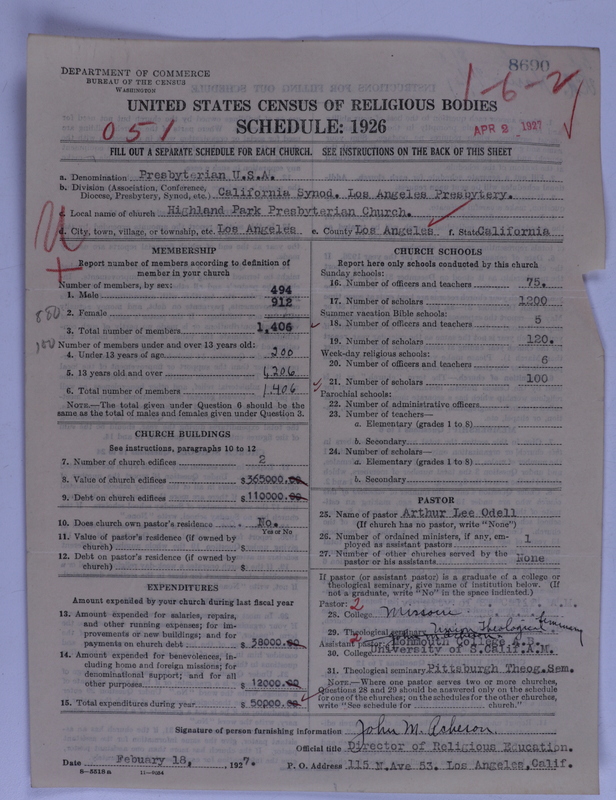 8690
DEPARTMENT OF COMMERCE
BUREAU OF THE CENSUS
WASHINGTON
1-6-2
UNITED STATES CENSUS OF RELIGIOUS BODIES
051
SCHEDULE: 1926
APR 2 1927
FILL OUT A SEPARATE SCHEDULE FOR EACH CHURCH. SEE INSTRUCTIONS ON THE BACK OF THIS SHEET
a. Denomination Presbyterian U.S.A.
b. Division (Association, Conference, Diocese, Presbytery, Synod, etc.) California Synod. Los Angeles Presbytery.
c. Local name of church Highland Park Presbyterian Church.
d. City, town, village, or township, etc. Los Angeles e. County Los Angeles f. State California
MEMBERSHIP
Report number of members according to definition of
member in your church
Number of members, by sex:
1. Male 494
2. Female 912
3. Total number of members 1,406
Number of members under and over 13 years old:
4. Under 13 years of age 200
5. 13 years old and over 1,206
6. Total number of members 1,406
NOTE.—The total given under Question 6 should be the
same as the total of males and females given under Question 3.
CHURCH BUILDINGS
See instructions, paragraphs 10 to 12
7. Number of church edifices 2
8. Value of church edifices $365000.00
9. Debt on church edifices $110000.00
10. Does church own pastor's residence No.
Yes or No
11. Value of pastor's residence (if owned by
church) $
12. Debt on pastor's residence (if owned by
church) $
EXPENDITURES
Amount expended by your church during last fiscal year
13. Amount expended for salaries, repairs,
and other running expenses; for im-
provements or new buildings; and for
payments on church debt $38000.00
14. Amount expended for benevolences, in-
cluding home and foreign missions; for
denominational support; and for all
other purposes $12000.00
15. Total expenditures during year $50000.00
CHURCH SCHOOLS
Report here only schools conducted by this church
Sunday schools:
16. Number of officers and teachers 75.
17. Number of scholars 1200
Summer vacation Bible schools:
18. Number of officers and teachers 5
19. Number of scholars 120.
Week-day religious schools:
20. Number of officers and teachers 6
21. Number of scholars 100
Parochial schools:
22. Number of administrative officers
23. Number of teachers—
a. Elementary (grades 1 to 8)
b. Secondary
24. Number of scholars—
a. Elementary (grades 1 to 8)
b. Secondary
PASTOR
25. Name of pastor Arthur Lee Odell
(If church has no pastor, write "None")
26. Number of ordained ministers, if any, em-
ployed as assistant pastors 1
27. Number of other churches served by the
pastor or his assistants None
If pastor (or assistant pastor) is a graduate of a college or
theological seminary, give name of institution below. (If
not a graduate, write "No" in the space indicated.)
Pastor: 2
28. College Missouri
29. Theological seminary Union Theological Seminary
Assistant pastor: 2 Monmouth College A.B.
30. College University of S.Calif.A.M.
31. Theological seminary Pittsburgh Theog.Sem.
NOTE.—Where one pastor serves two or more churches,
Questions 28 and 29 should be answered only on the schedule
for one of the churches; on the schedules for the other churches,
write "See schedule for church."
Signature of person furnishing information John M. Acheson
Official title Director of Religious Education.
Date Febuary 18, 1927.
P. O. Address 115 N.Ave 53. Los Angeles,Calif.
8-5518a 11-9584